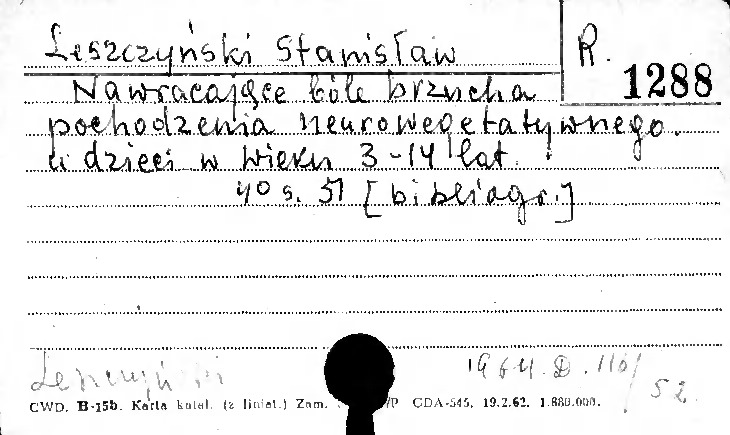 Leszczyński Stanisław R. 1288
Nawracające bóle brzucha
pochodzenia neurowegetatywnego.
u dzieci w wieku 3-14 lat.
40 s. 51 [bibliogr.]
Leszczyński 1964.D.110/52
CWD. B-15b. Karta katal. (z liniat.) Zam. GDA-545. 19.2.62. 1.680.000.